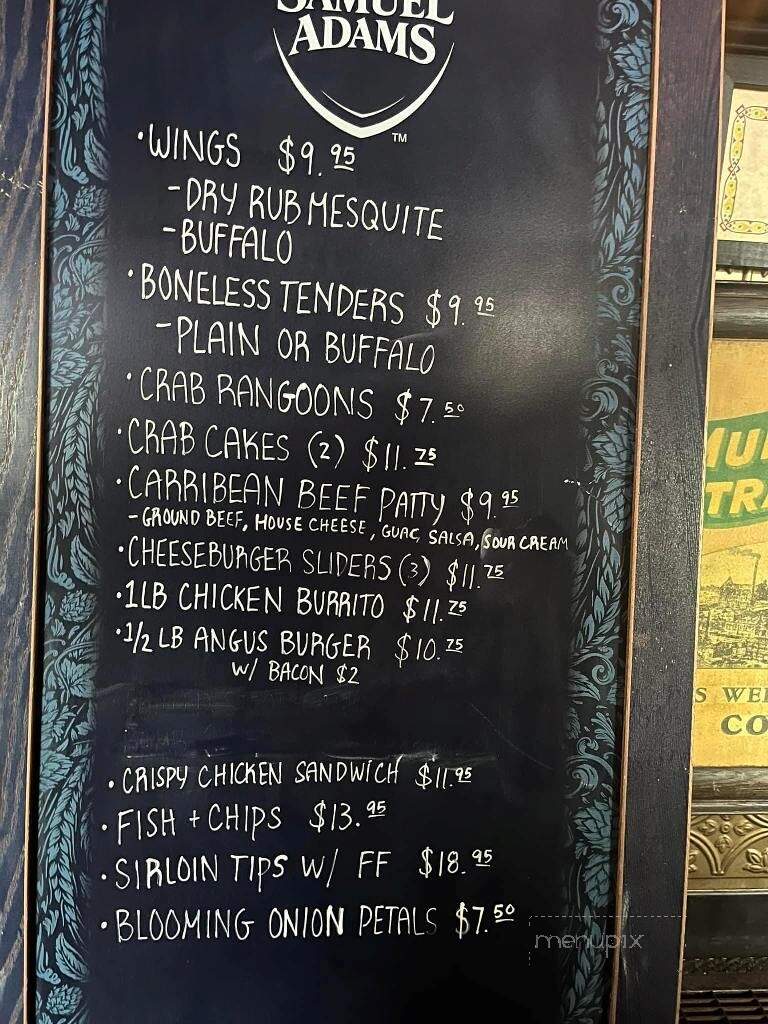 SAMUEL
ADAMS
TM
·WINGS $9.95
-DRY RUB MESQUITE
-BUFFALO
·BONELESS TENDERS $9.95
-PLAIN OR BUFFALO
·CRAB RANGOONS $7.50
·CRAB CAKES (2) $11.75
·CARRIBEAN BEEF PATTY $9.95
-GROUND BEEF, HOUSE CHEESE, GUAC, SALSA, SOUR CREAM
·CHEESEBURGER SLIDERS (3) $11.75
·1LB CHICKEN BURRITO $11.75
·1/2 LB ANGUS BURGER $10.75
W/ BACON $2
·CRISPY CHICKEN SANDWICH $11.95
·FISH + CHIPS $13.95
·SIRLOIN TIPS W/ FF $18.95
·BLOOMING ONION PETALS $7.50
menupix
CO